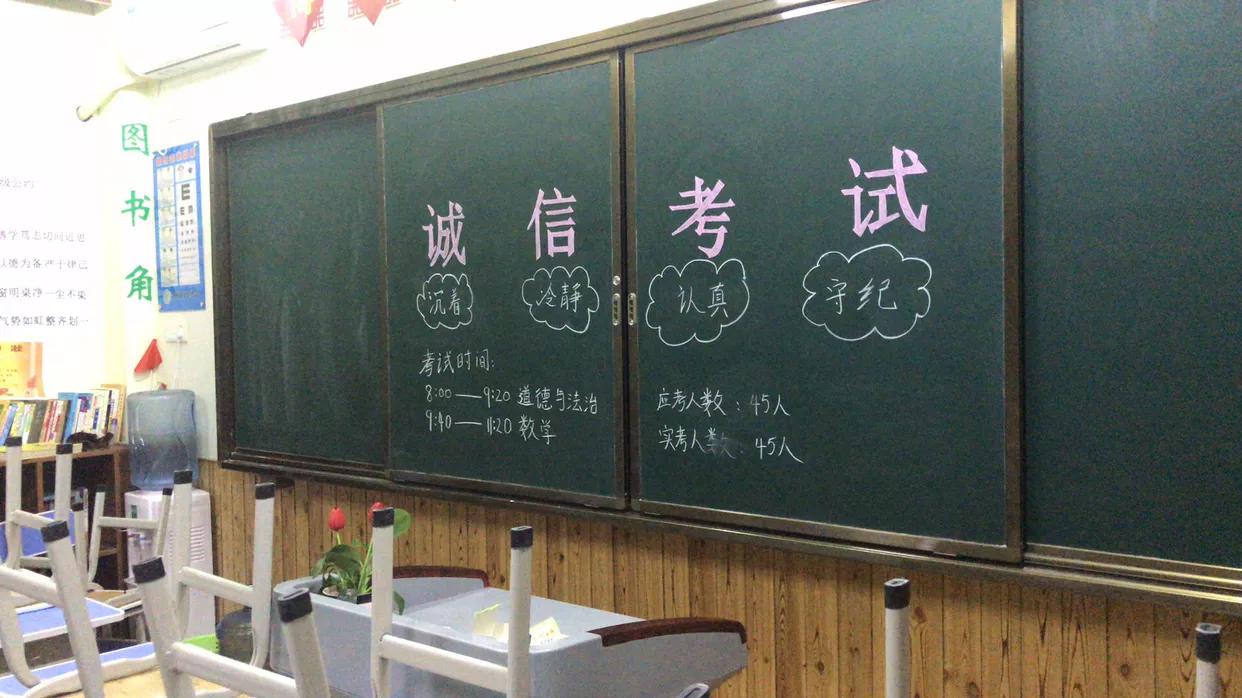 图书角
级公约
博学笃志切问近思
以德为备严于律己
窗明桌净一尘不染
气势如虹整齐划一
诚信考试
沉着 冷静 认真 守纪
考试时间:
8:00——9:20 道德与法治
9:40——11:20 数学
应考人数:45人
实考人数:45人
E